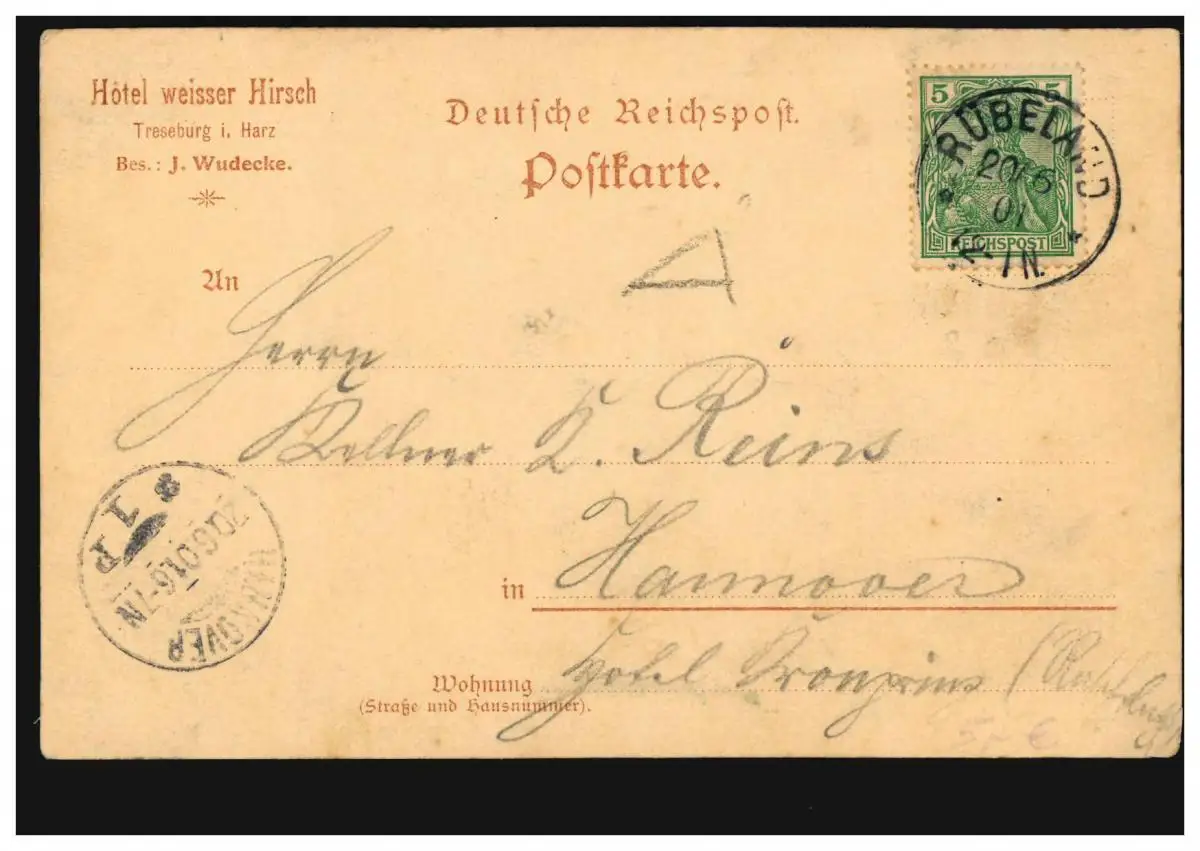 Hôtel weisser Hirsch
Treseburg i. Harz
Bes.: J. Wudecke.
Deutſche Reichspoſt.
Poſtkarte.
5 5
REICHSPOST
RÜBELAND
20/6
01
1N.
An
Herrn
Kellner K. Reins
in Hannover
Hotel Cronprins
Wohnung
(Straße und Hausnummer).
HANNOVER
20.6.01.6-7N
1P
5,- €